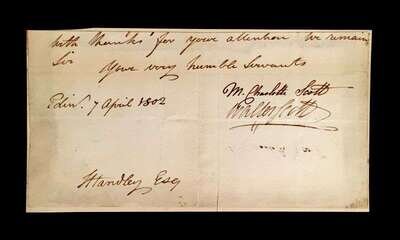 with thanks for your attention we remain
Sir
Your very humble Servants
Edinr. 7 April 1802
M. Charlotte Scott
Walter Scott
Handley Esq